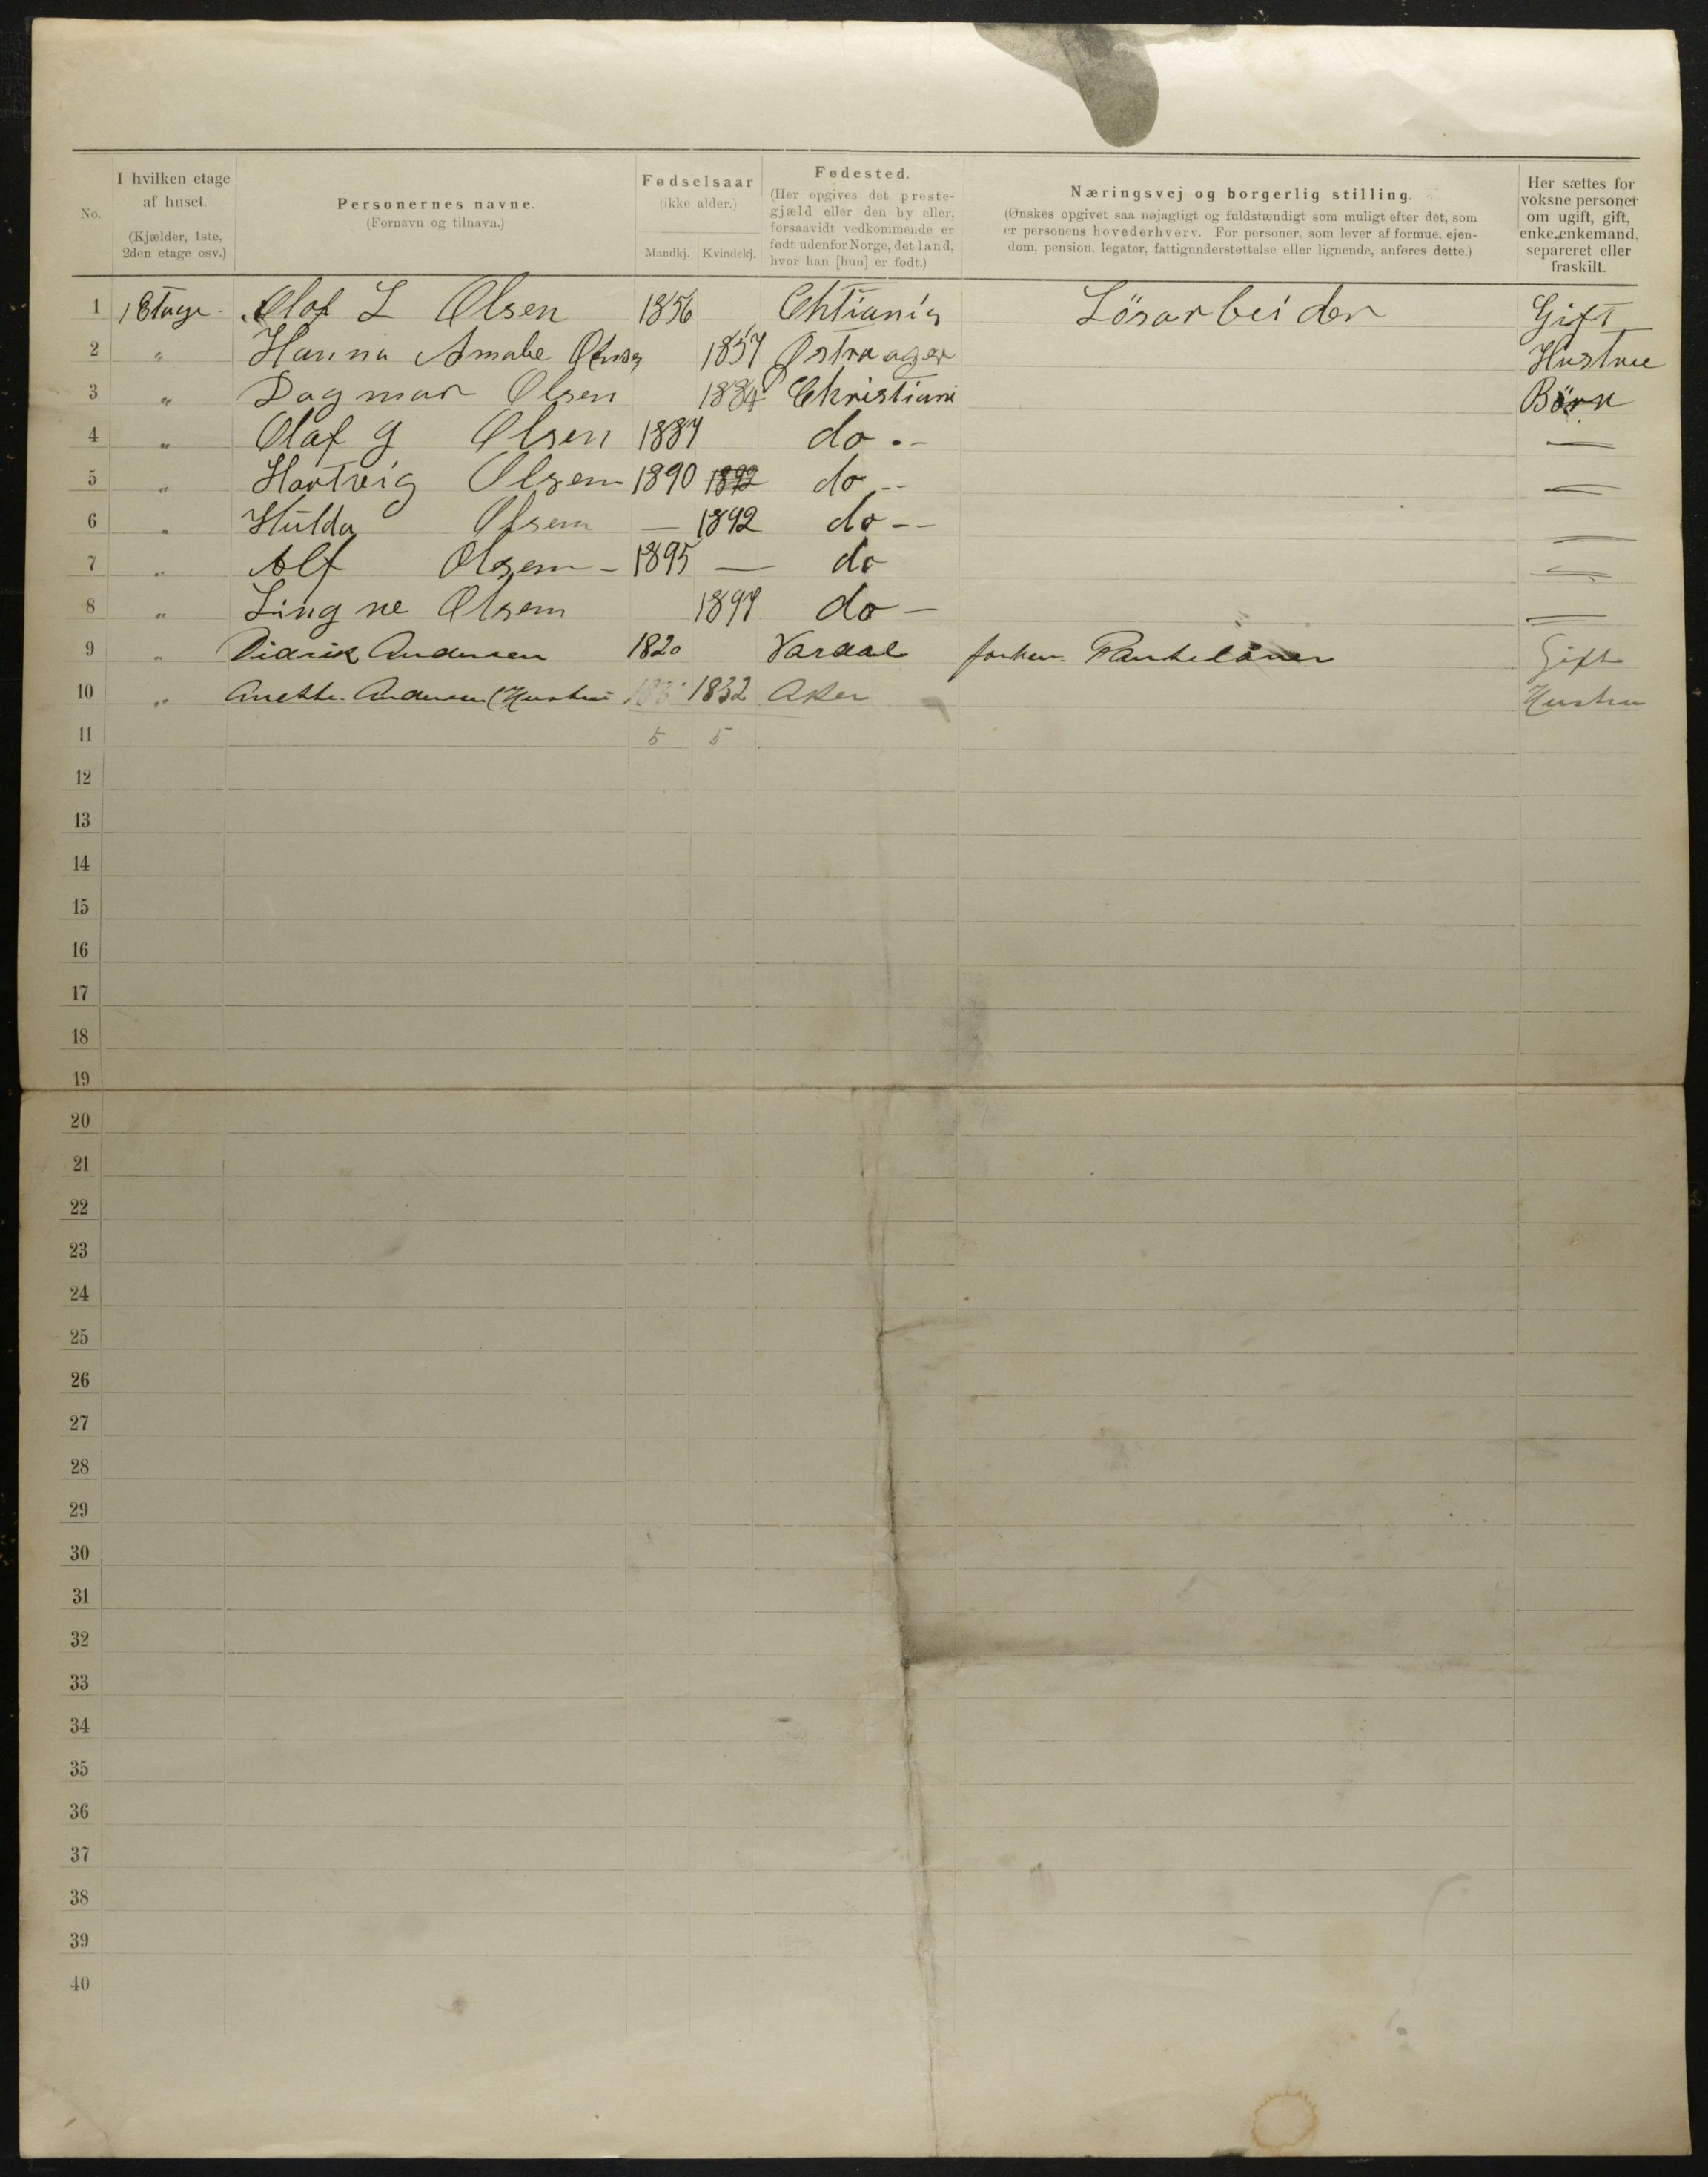 No. I hvilken etage af huset. (Kjælder, 1ste, 2den etage osv.) Personernes navne. (Fornavn og tilnavn.) Fødselsaar (ikke alder.) Mandkj. Kvindekj. Fødested. (Her opgives det prestegjæld eller den by eller, forsaavidt vedkommende er født udenfor Norge, det land, hvor han [hun] er født.) Næringsvej og borgerlig stilling. (Ønskes opgivet saa nøjagtigt og fuldstændigt som muligt efter det, som er personens hovederhverv. For personer, som lever af formue, ejendom, pension, legater, fattigunderstøttelse eller lignende, anføres dette.) Her sættes for voksne personer om ugift, gift, enke, enkemand, separeret eller fraskilt.
1 1 Etage. Olaf L Olsen 1856 Chtiania Lösarbeider Gift
2 " Hanna Amalie Olsen 1857 Østraager Hustrue
3 " Dagmar Olsen 1884 Christiani Börn
4 " Olaf G Olsen 1887 do.- —
5 " Hartvig Olsen 1890 1892 do -- —
6 " Hulda Olsen — 1892 do -- —
7 " Alf Olsen - 1895 — do —
8 " Lingne Olsen 1897 do — —
9 " Didrik Andersen 1820 Vardal Gift
10 " Anette Andersen (Hustru 1832 Aker Hustru
11 5 5
12
13
14
15
16
17
18
19
20
21
22
23
24
25
26
27
28
29
30
31
32
33
34
35
36
37
38
39
40